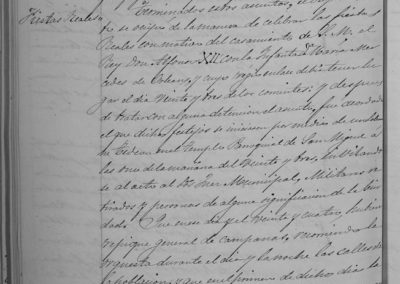 Fiestas Reales
Terminados estos asuntos, el
po se ocupó de la manera de celebrar las fiestas
Reales con motivo del casamiento de S. M. el
Rey Don Alfonso XII con la Infanta Dª Maria Mer
cedes de Orleans, y cuyo regio enlace debia tener lu
gar el dia veinte y tres de los corrientes; y despues
de tratar con alguna detencion el asunto, fue acordado
el que dichos festejos se iniciasen por medio de un solem
ne Tedeum en el templo Parroquial de San Miguel á
las once de la mañana del veinte y tres, invitando
se al acto al Municipal, Militares re
tirados y personas de alguna significacion de la ciu
dad. Que ese dia y el veinte y cuatro hubiera
repique general de campanas, recorriendo la
orquesta durante el dia y la noche las calles de
la poblacion, y que en el primero de dichos dias la